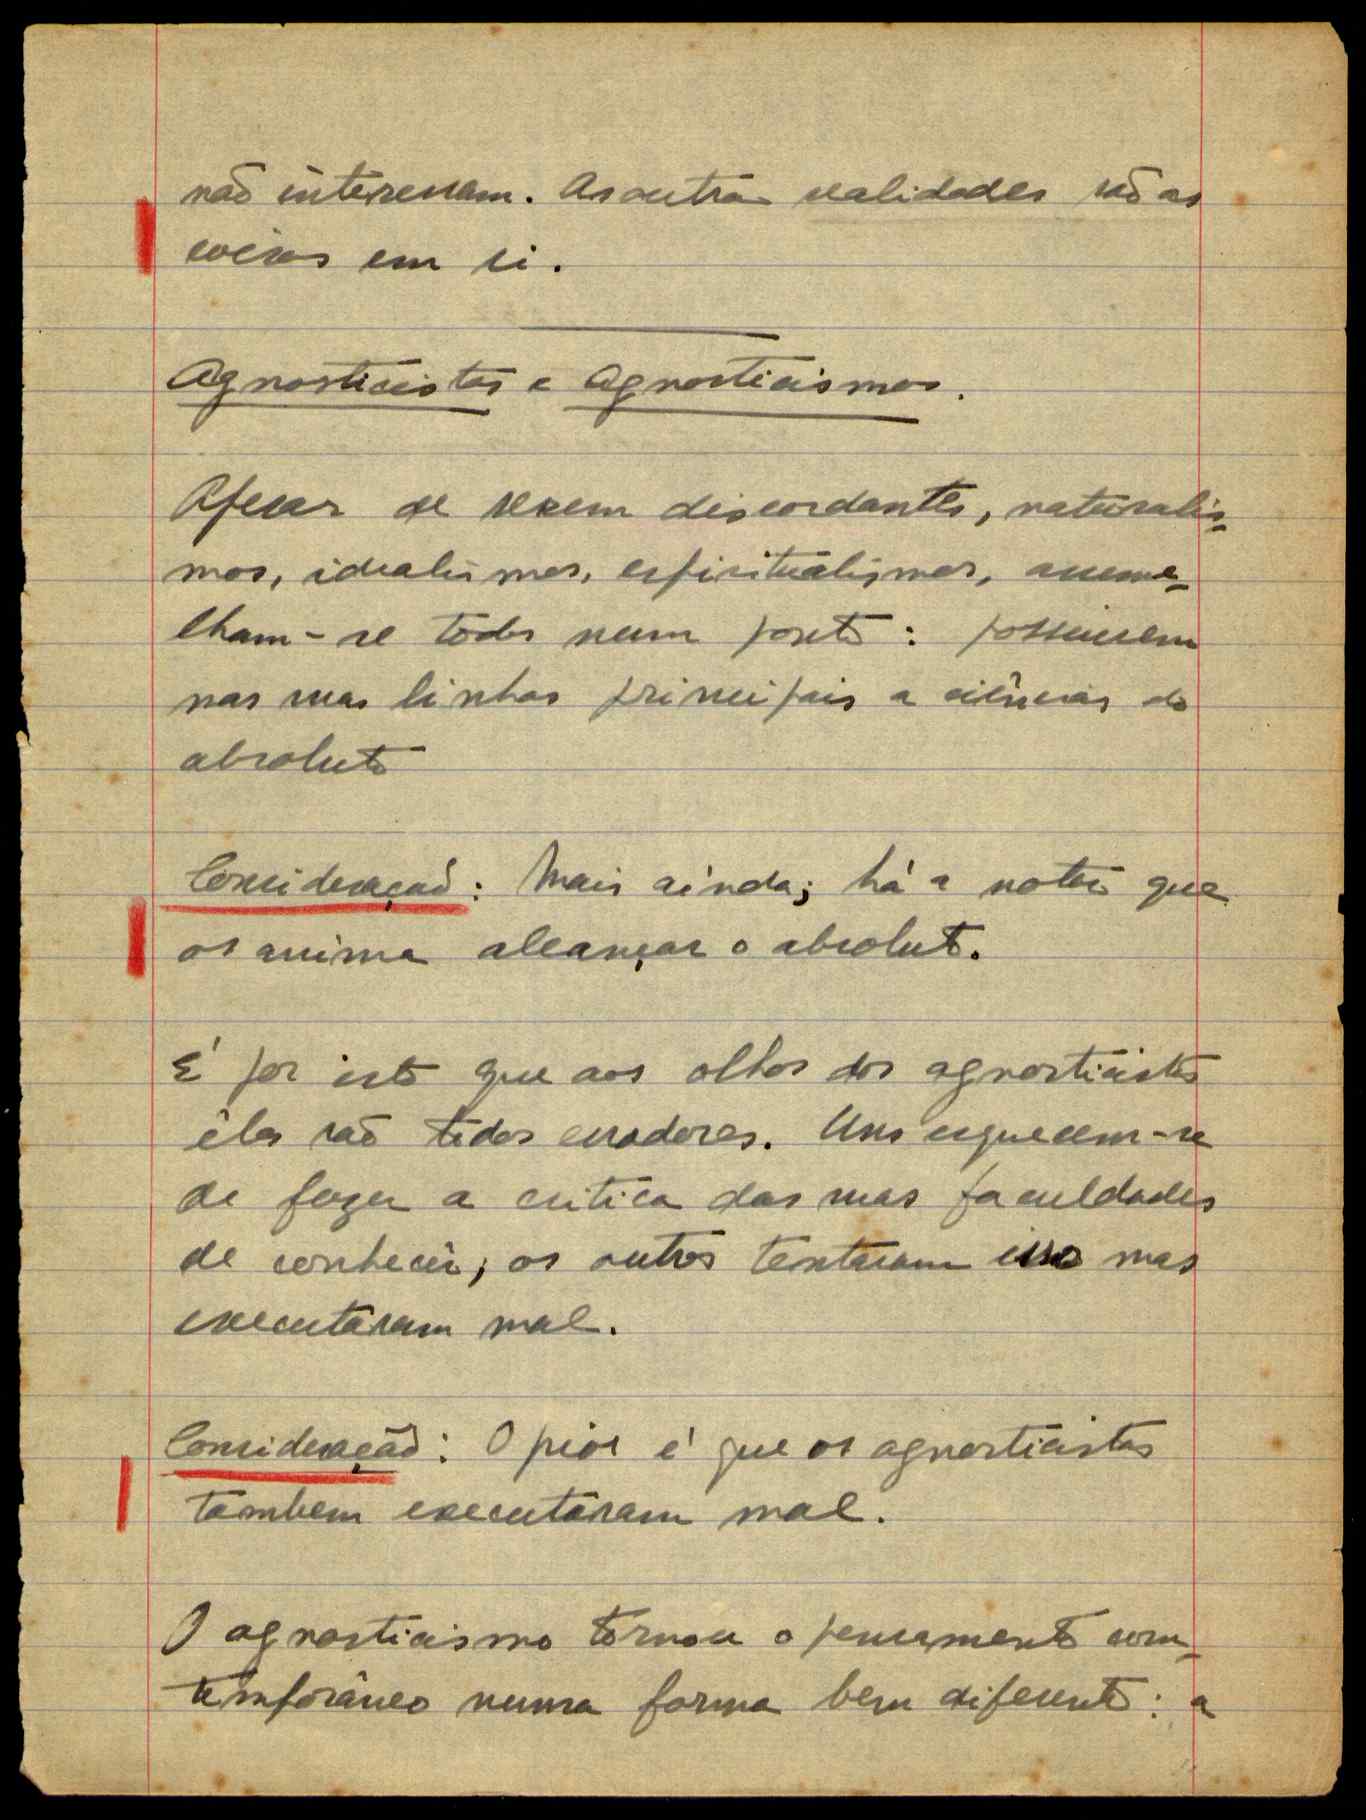 não interessam. As outras realidades são as
coisas em si.
Agnosticistas e Agnosticismos.
Apesar de serem discordantes, naturalis-
mos, idealismos, espiritualismos, asseme-
lham-se todos num ponto: possuirem
nas suas linhas principais a ciência do
absoluto
Consideração: Mais ainda; há a notar que
os anima alcançar o absoluto.
É por isto que aos olhos dos agnosticistas
êles são todos erradores. Uns esquecem-se
de fazer a critica das suas faculdades
de conhecer; os outros tentaram isso mas
executaram mal.
Consideração: O pior é que os agnosticistas
tambem executaram mal.
O agnosticismo tornou o pensamento com-
temporâneo numa forma bem diferente: a